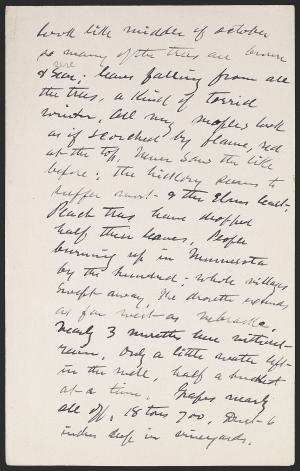 look like middle of october
so many of the trees are brown
& sere; leaves falling from all
the trees, a kind of torrid
winter, All my maples look
as if scorched by flame, red
at the top. Never saw the like
before; the hickory seems to
suffer most & the Elms least.
Peach trees have dropped
half their leaves. People
burning up in Minnesota
by the hundred; whole villages
swept away, The drouth extends
as far west as Nebraska,
nearly 3 months here without
rain, Only a little water left
in the well, half a bucket
at a time. Grapes nearly
all off, 18 tons 700, Dust 6
inches deep in vineyards.